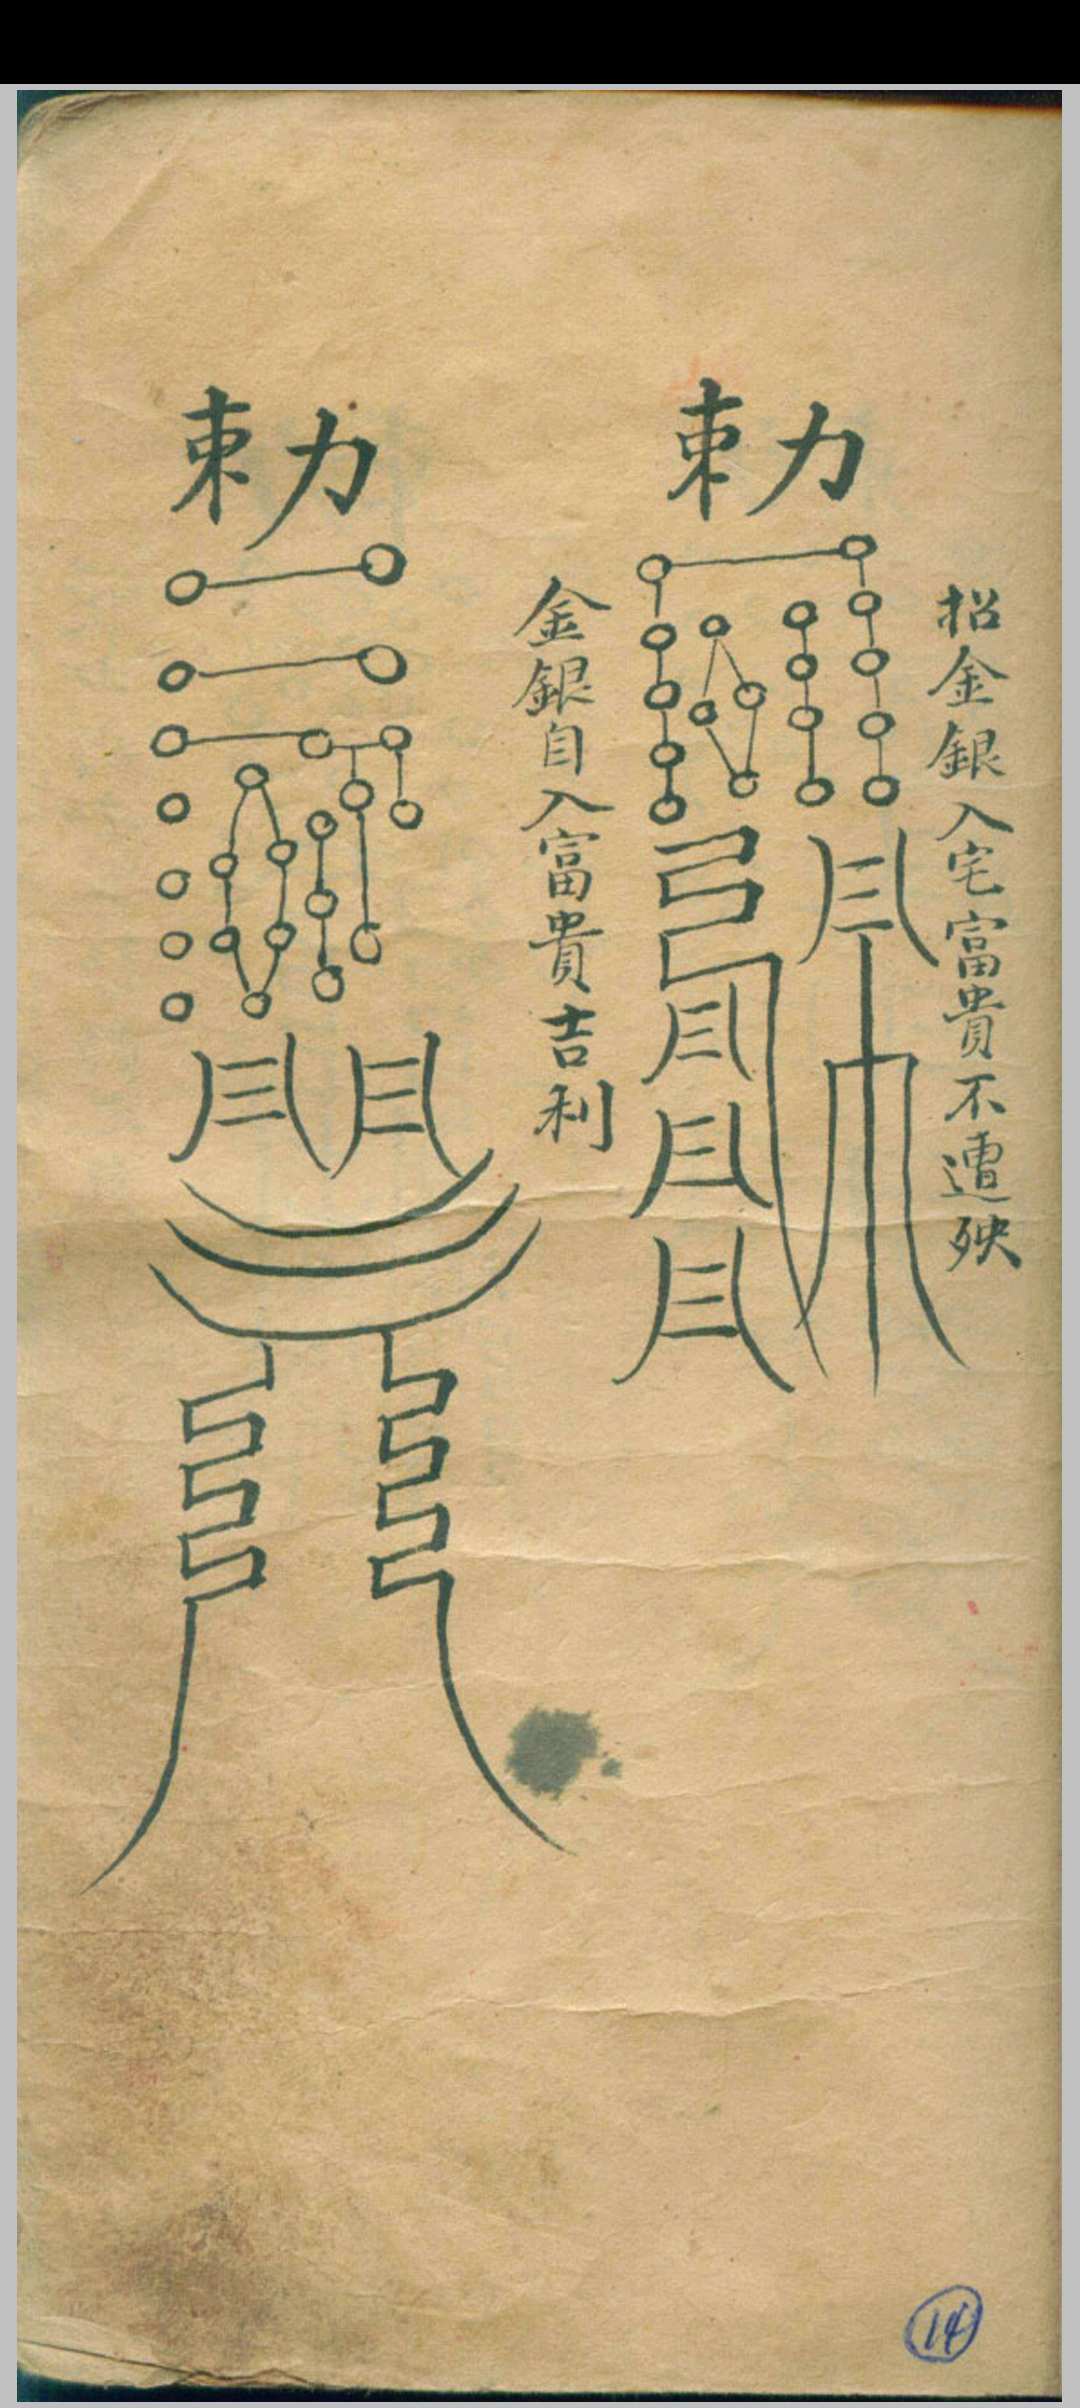 招金銀入宅富貴不遭殃
勅
金銀自入富貴吉利
勅
14